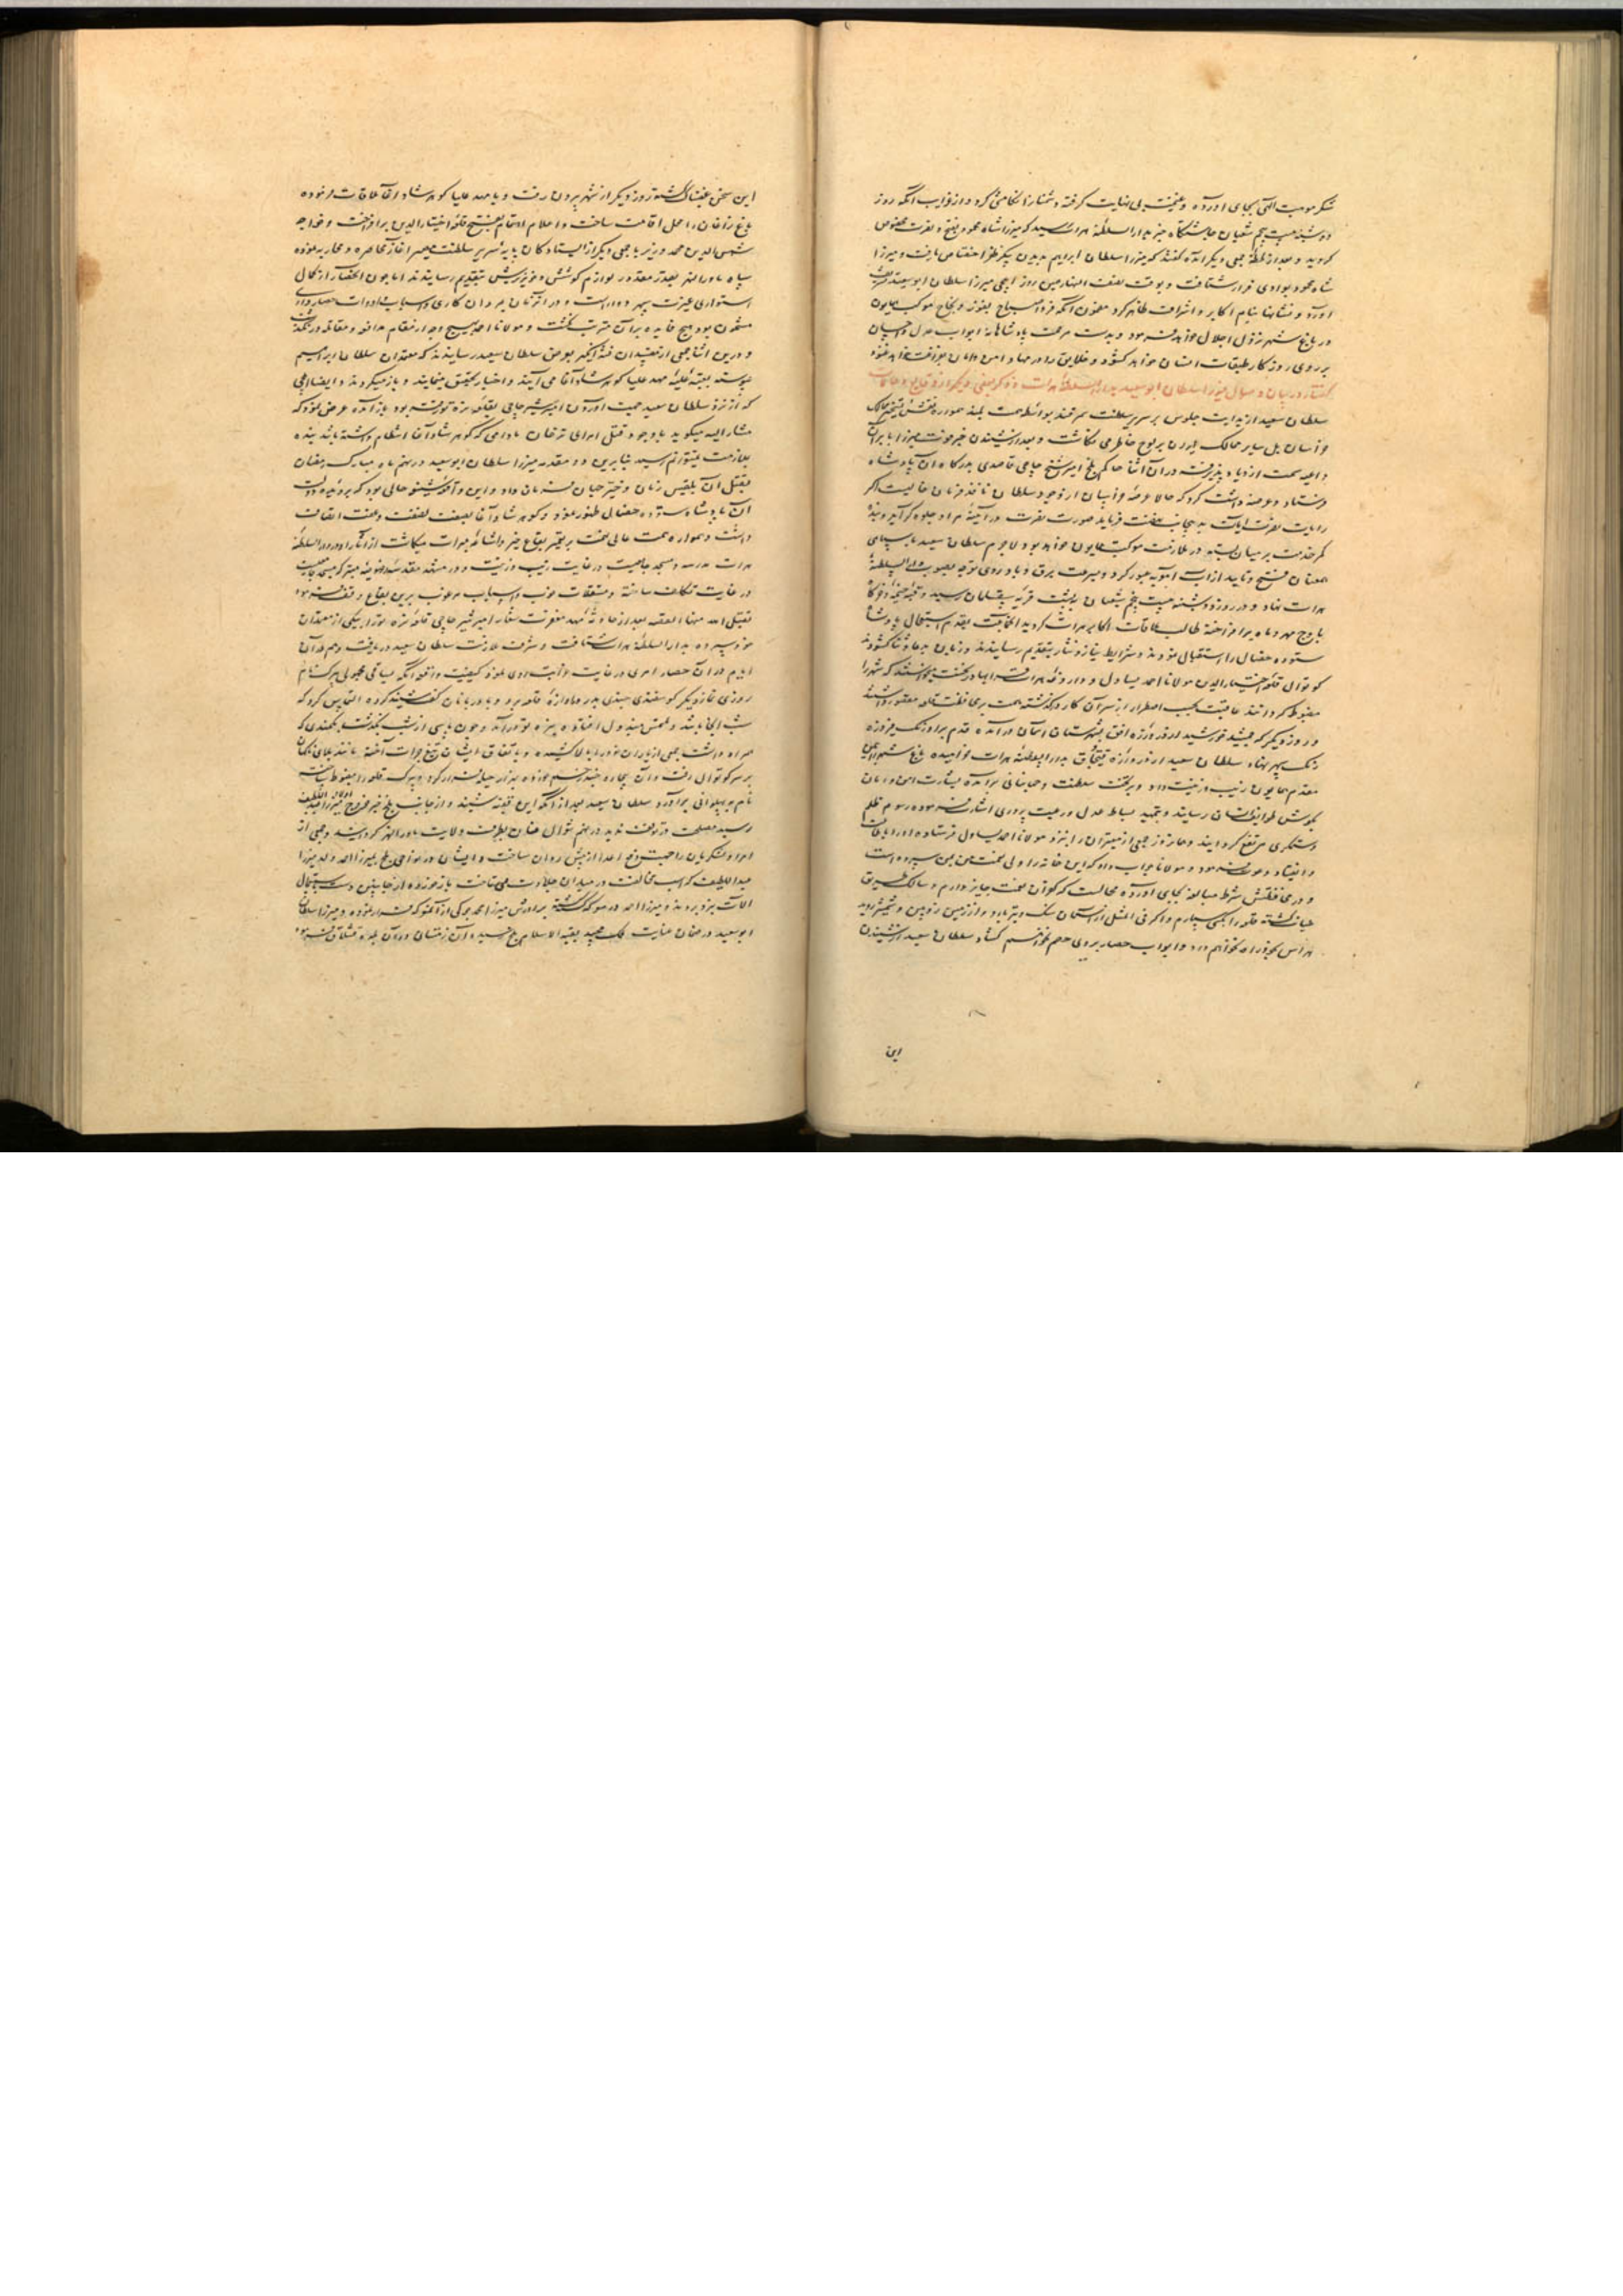 شکر موهبت الهی بجای آورده و غنیمت بی نهایت گرفته دشمنان را تکامشی کرد و از نوادر آنکه روز
دوشنبه بیست پنجم شعبان چاشتگاه خبر بدار السلطنه هرات رسید که میرزا شاه محمود بفتح و نصرت مخصوص
گردید و بعد از لحظه جمعی دیگر آمده گفتند که میرزا سلطان ابراهیم بدین پیکر ظفر اختصاص یافت و میرزا
شاه محمود بوادی فرار شتافت و بوقت نصف النهار همین روز ایلچی میرزا سلطان ابو سعید تشریف
آورد و نشانها بنام اکابر و اشراف ظاهر کرد مضمون آنکه فردا صباح بفوز و نجاح موکب همایون
در باغ شهر نزول اجلال خواهد فرمود و بدست مرحمت پادشاهانه ابواب عدل و احسان
بر روی روزگار طبقات انسان خواهد گشود و خلایق را در مهاد امن و امان خواهد غنود
گفتار در بیان وصول میرزا سلطان ابو سعید بدار السلطنه هرات و ذکر بعضی دیگر از وقایع و حالات
سلطان سعید از بدایت جلوس بر سریر سلطنت سمرقند بواسطه همت بلند همواره نقش تسخیر ممالک
خراسان بل سایر ممالک ایران بر لوح خاطر می نگاشت و بعد از شنیدن خبر فوت میرزا بابر آن
داعیه سمت ازدیاد پذیرفت در آن اثنا حاکم بلخ امیر شیخ حاجی قاصدی بدرگاه آن پادشاه
فرستاد و عرضه داشت کرد که حالا عرصه خراسان از وجود سلطان نافذ فرمان خالیست اگر
رایات نصرت آیات بدینجانب نهضت فرماید صورت نصرت در آینه مراد جلوه گر آید و بنده
کمر خدمت بر میان بسته در ملازمت موکب همایون خواهد بود لاجرم سلطان سعید با سپاهی
همعنان فتح و تایید از آب آمویه عبور کرد و بسرعت برق و باد روی توجه بصوب دار السلطنه
هرات نهاد و در روز دوشنبه بیست پنجم شعبان بقریه سقلمان رسید و قبه خیمه و خرگاه
باوج مهر و ماه برافراخته طالب ملاقات اکابر هرات گردید آنجماعت بقدم استقبال پادشاه
ستوده خصال را استقبال نمودند و شرایط نیاز و نثار بتقدیم رسانیدند و زبان بدعا و ثنا گشودند
کوتوال قلعه اختیار الدین مولانا احمد یساول و داروغه هرات در نخست میخواستند که شهر را
مضبوط گردانند عاقبت بحسب اضطرار از سر آن کار درگذشته همت بر محافظت قلعه مقصور داشتند
و روز دیگر که جمشید خورشید از دروازه افق بشهرستان آسمان درآمده قدم بر اورنگ فیروزه
رنگ سپهر نهاد سلطان سعید از دروازه قپچاق بدار السلطنه هرات خرامیده باغ شهر از یمن
مقدم همایون زیب و زینت داد و بر تخت سلطنت و جهانبانی برآمده بشارت امن و امان
بگوش طوایف انسان رسانید و بتمهید بساط عدل و رعیت پروری اشارت فرموده رسوم ظلم
و ستمگری مرتفع گردانید و همان روز جمعی از معتبران را نزد مولانا احمد یساول فرستاده او را باطاعت
و انقیاد دعوت فرمود و مولانا جواب داد که این خانه را ولی نعمت من بمن سپرده است
و در محافظتش شرط مبالغه بجای آورده محالست که کفران نعمت جایز دارم و سالک طریق
خیانت گشته قلعه را بکسی سپارم و اگر فی المثل از آسمان سنگ و تیر بارد و از زمین زوبین و شمشیر روید
هراس بخود راه نخواهم داد و ابواب حصار بر روی خصم نخواهم گشاد سلطان سعید از شنیدن
این
این سخن غضبناک گشته روز دیگر از شهر بیرون رفت و با مهد علیا گوهر شاد آقا ملاقات فرموده
باغ زاغان را محل اقامت ساخت و اعلام اهتمام بفتح قلعه اختیار الدین برافراخت و خواجه
شمس الدین محمد وزیر با جمعی دیگر از ایستادگان پایه سریر سلطنت مصیر آغاز محاصره و محاربه نموده
سپاه ماورا النهر بقدر مقدور لوازم کوشش و خونریزش بتقدیم رسانیدند اما چون آنحصار از کمال
استواری غیرت سپهر دوار است و در آنزمان بمردان کاری و اسباب و ادوات حصارداری
مشحون بود هیچ فایده بر آن مترتب نگشت و مولانا احمد بهیچ وجه از مقام مدافعه و مقاتله در نگذشت
و درین اثنا جمعی از مفسدان فتنه انگیز بعرض سلطان سعید رسانیدند که معتمدان سلطان ابراهیم
پیوسته بعتبه علیه مهد علیا گوهر شاد آقا می آیند و اخبار تحقیق مینمایند و باز میگردند و ایضا ایلچی
که از نزد سلطان سعید جهت آوردن امیر شیر حاجی بقلعه نره تو رفته بود باز آمده عرض نمود که
مشار الیه میگوید با وجود قتل امرای ترخان مادامی که گوهر شاد آقا انتظام داشته باشد بنده
بملازمت نمیتوانم رسید بنابرین دو مقدمه میرزا سلطان ابو سعید در نهم ماه مبارک رمضان
بقتل آن بلقیس زمان و خیر حسان فرمان داد و این واقعه شنیع حالی بود که بر وجنات دولت
آن پادشاه ستوده خصال ظهور نمود و گوهر شاد آقا بصفت عفت و عفت اتصاف
داشت و همواره همت عالی نهمت بر تعمیر بقاع خیر و اشاعه مبرات میگماشت از آثار او در دار السلطنه
هرات مدرسه و مسجد جامعیست در غایت زیب و زینت و در مشهد مقدسه رضویه نیز مسجد جامعیست
در غایت تکلف ساخته و مستغلات خوب و اسباب مرغوب برین بقاع وقف فرموده
تقبل الله منها القصه بعد از حادثه مهد مغفرت شعار امیر شیر حاجی قلعه نره تو را بیکی از معتمدان
خود سپرده بدار السلطنه هرات شتافت و شرف ملازمت سلطان سعید دریافت و هم در آن
ایام در آن حصار امری در غایت غرابت روی نمود کیفیت واقعه آنکه سپاهی مجهولی پیرک نام
روزی نماز دیگر گوسفندی چندی بدر دروازه قلعه برد و با دربانان گفت و شنید کرده التماس کرد که
شب آنجا باشد و ملتمس مبذول افتاده پیره نره تو درآمد و چون پاسی از شب بگذشت بکمندی که
همراه داشت جمعی از یاران خود را بالا کشید و باتفاق ایشان تیغ جرات آخته مانند بلای ناگهان
بر سر کوتوال رفت و آن بیچاره چند زخم خورده بهزار حیله فرار کرد و پیرک قلعه را مضبوط ساخته
نام به پهلوانی برآورد سلطان سعید بعد از آنکه این قضیه شنید و از جانب بلخ خبر خروج اولاد میرزا عبد اللطیف
رسید مصلحت در توقف ندید در نهم شوال عنان بطرف ولایت ماورا النهر گردانید و جمعی از
امرا و لشکریان را جهت دفع اعدا از پیش روان ساخت و ایشان در نواحی بلخ بمیرزا احمد ولد میرزا
عبد اللطیف که اسب مخالفت در میدان جلادت می تاخت باز خورده از جانبین دست باستعمال
آلات نبرد بردند و میرزا احمد در معرکه کشته برادرش میرزا محمد جوکی از آنمعرکه فرار نموده و میرزا سلطان
ابو سعید در ضمان عنایت ملک مجید بقبه الاسلام بلخ رسیده آن زمستان در آن بلده قشلاق فرمود